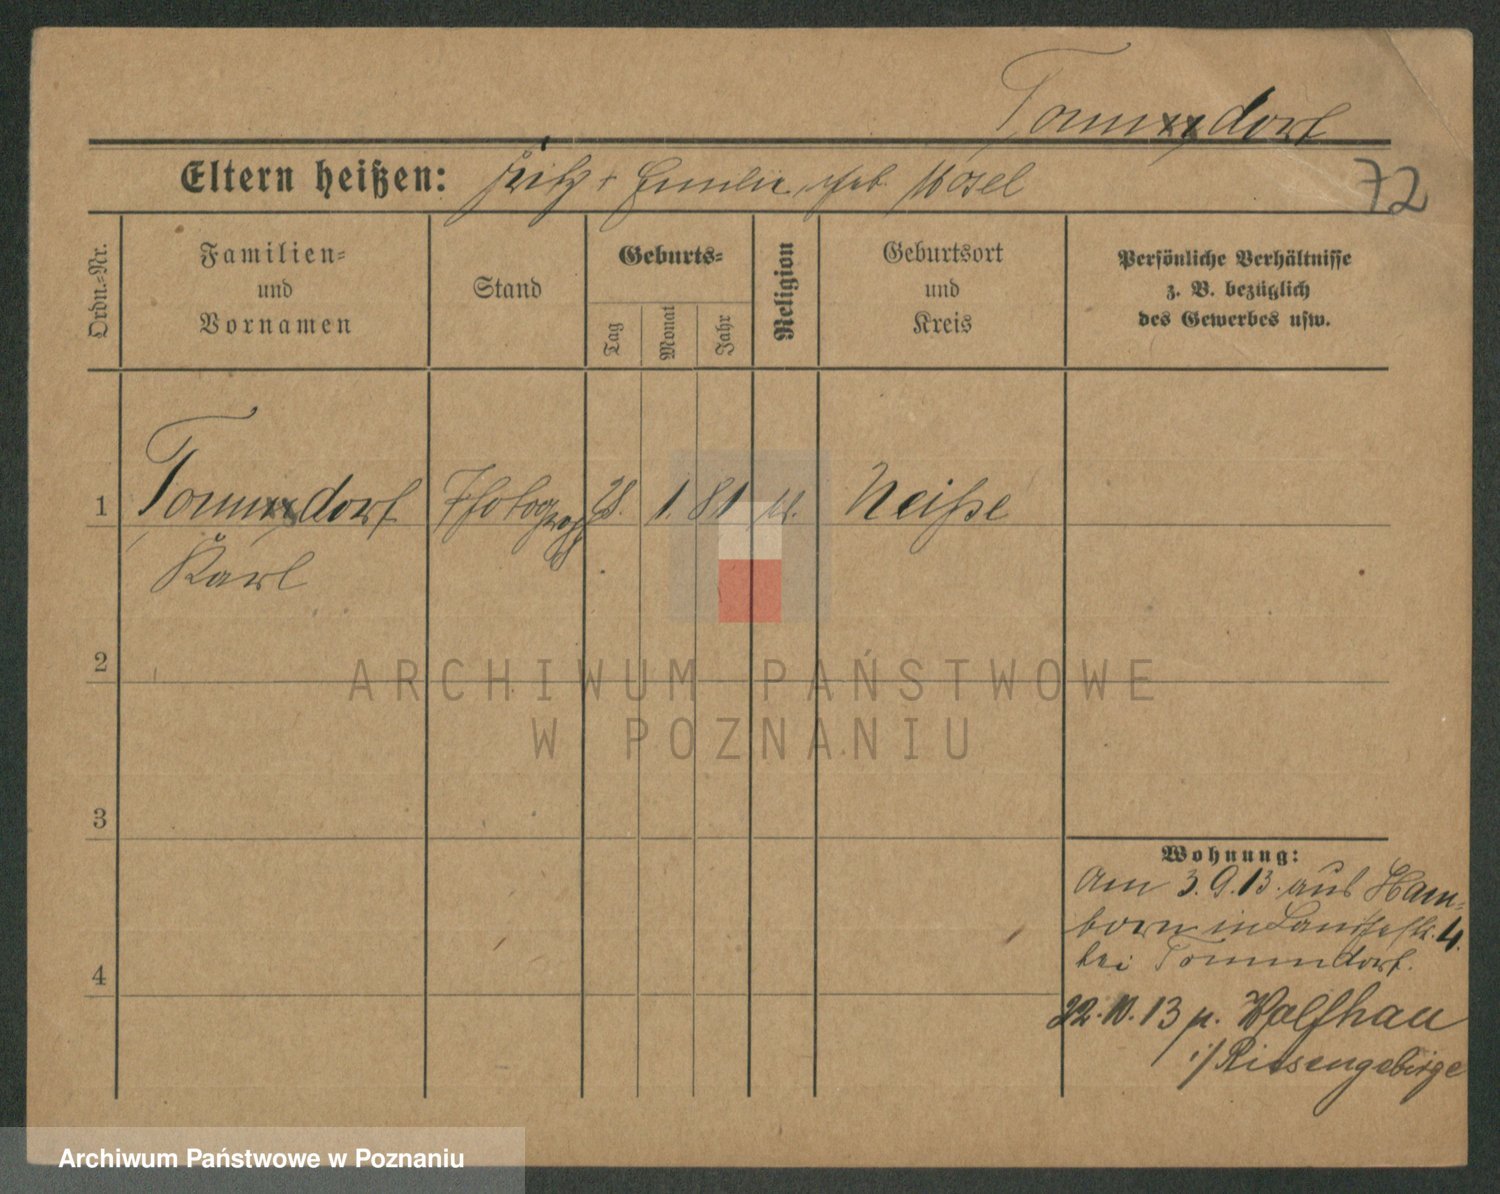 Tommdorf
Eltern heißen: Fritz + Emilie geb. Mosel
72
Ordn.-Nr.
Familien-
und
Vornamen
Stand
Geburts-
Tag
Monat
Jahr
Religion
Geburtsort
und
Kreis
Persönliche Verhältnisse
z. B. bezüglich
des Gewerbes usw.
1
Tommdorf
Karl
Photograph
28. 1. 81
Neiße
2
3
4
Wohnung:
Am 3.9.13. aus Ham-
born in 4.
bei Tommdorf.
22.10.13 n. Wolfshau
i/Riesengebirge
ARCHIWUM PAŃSTWOWE
W POZNANIU
Archiwum Państwowe w Poznaniu